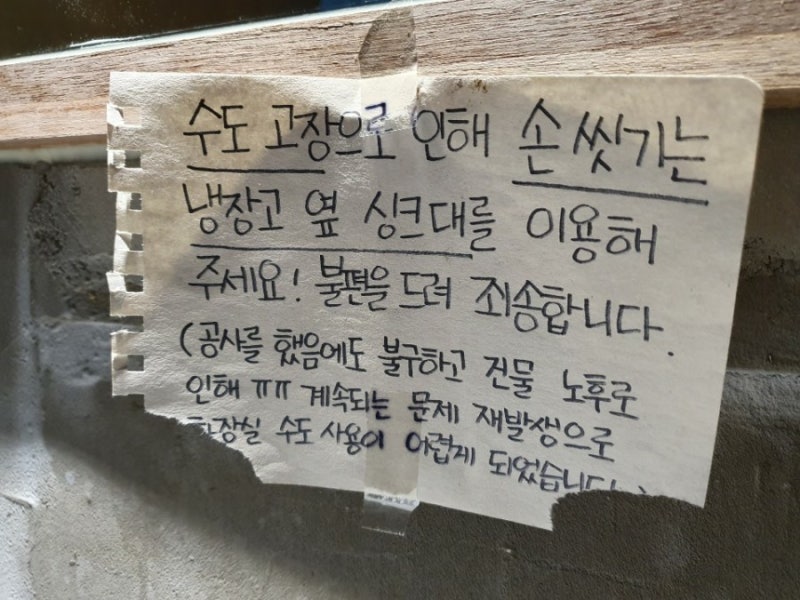 수도 고장으로 인해 손 씻기는
냉장고 옆 싱크대를 이용해
주세요! 불편을 드려 죄송합니다.
(공사를 했음에도 불구하고 건물 노후로
인해 ㅠㅠ 계속되는 문제 재발생으로
화장실 수도 사용이 어렵게 되었습니다..)